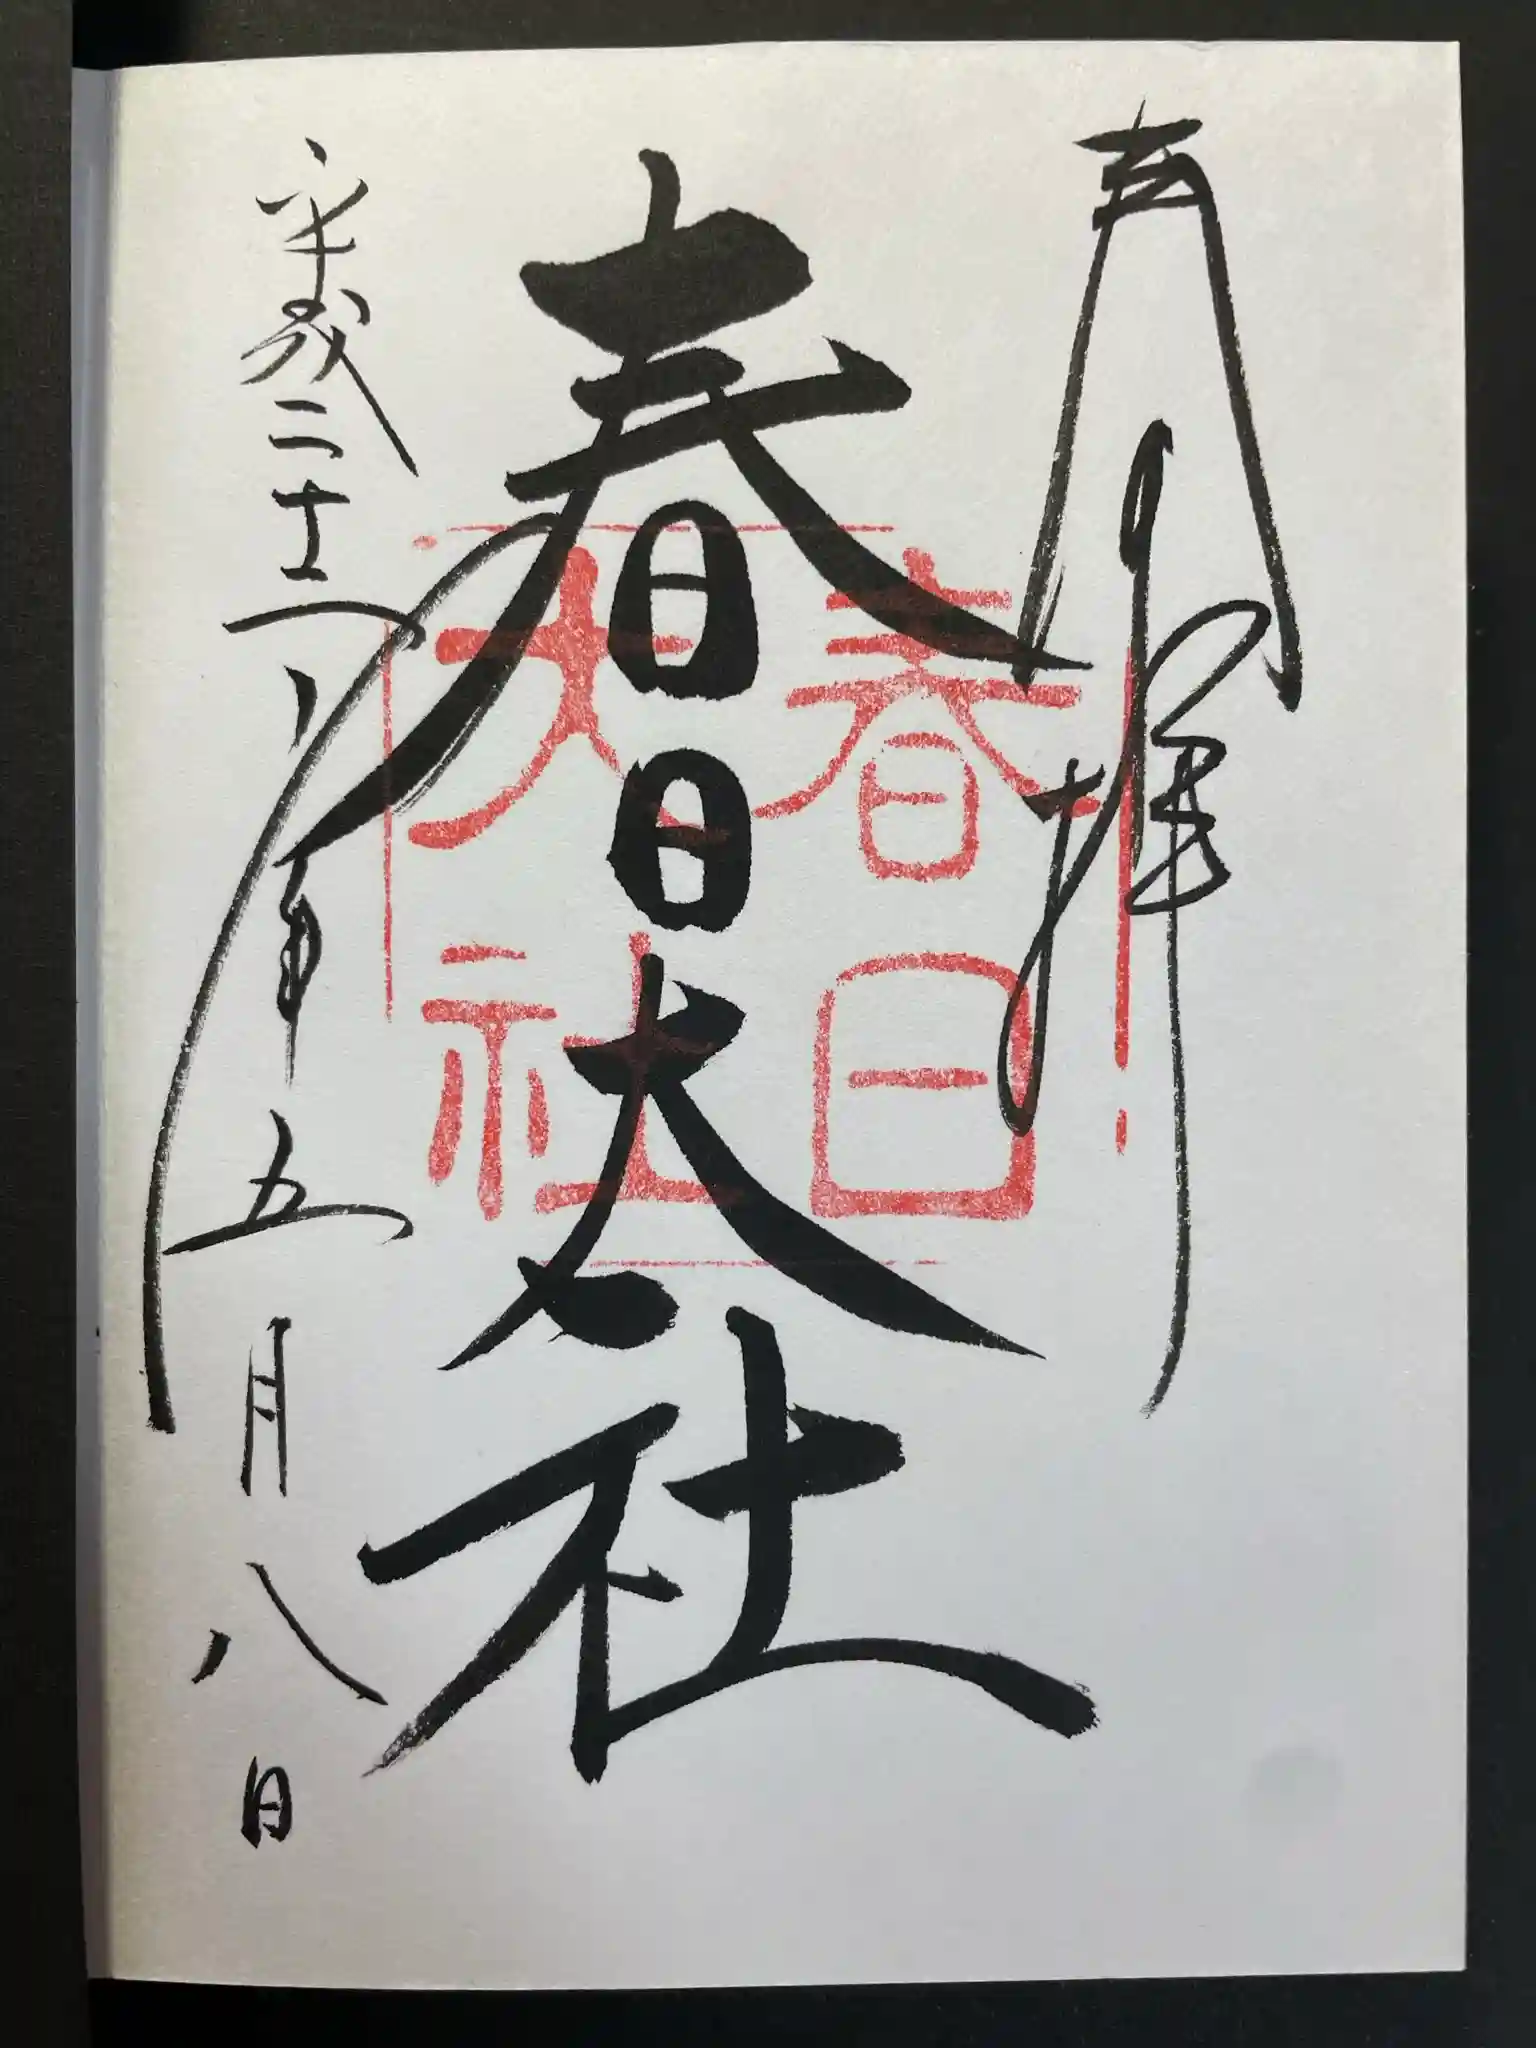 奉拝
春日大社
平成二十六年五月八日
春日
大社